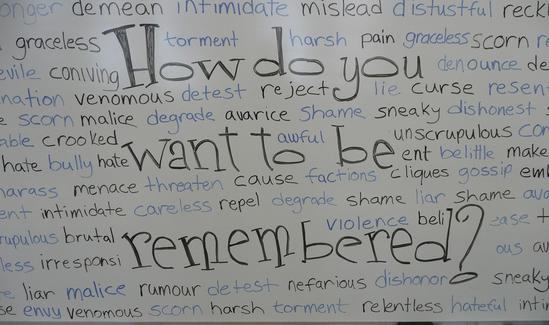 demean intimidate mislead distustful
graceless torment harsh pain graceless scorn
coniving How do you denounce
venomous detest reject lie curse
scorn malice degrade avarice shame sneaky dishonest
crooked awful unscrupulous
hate bully hate want to be belittle make
menace threaten cause factions cliques gossip
intimidate careless repel degrade shame liar shame
brutal violence
remembered?
liar malice rumour detest nefarious sneaky
envy venomous scorn harsh torment relentless hateful